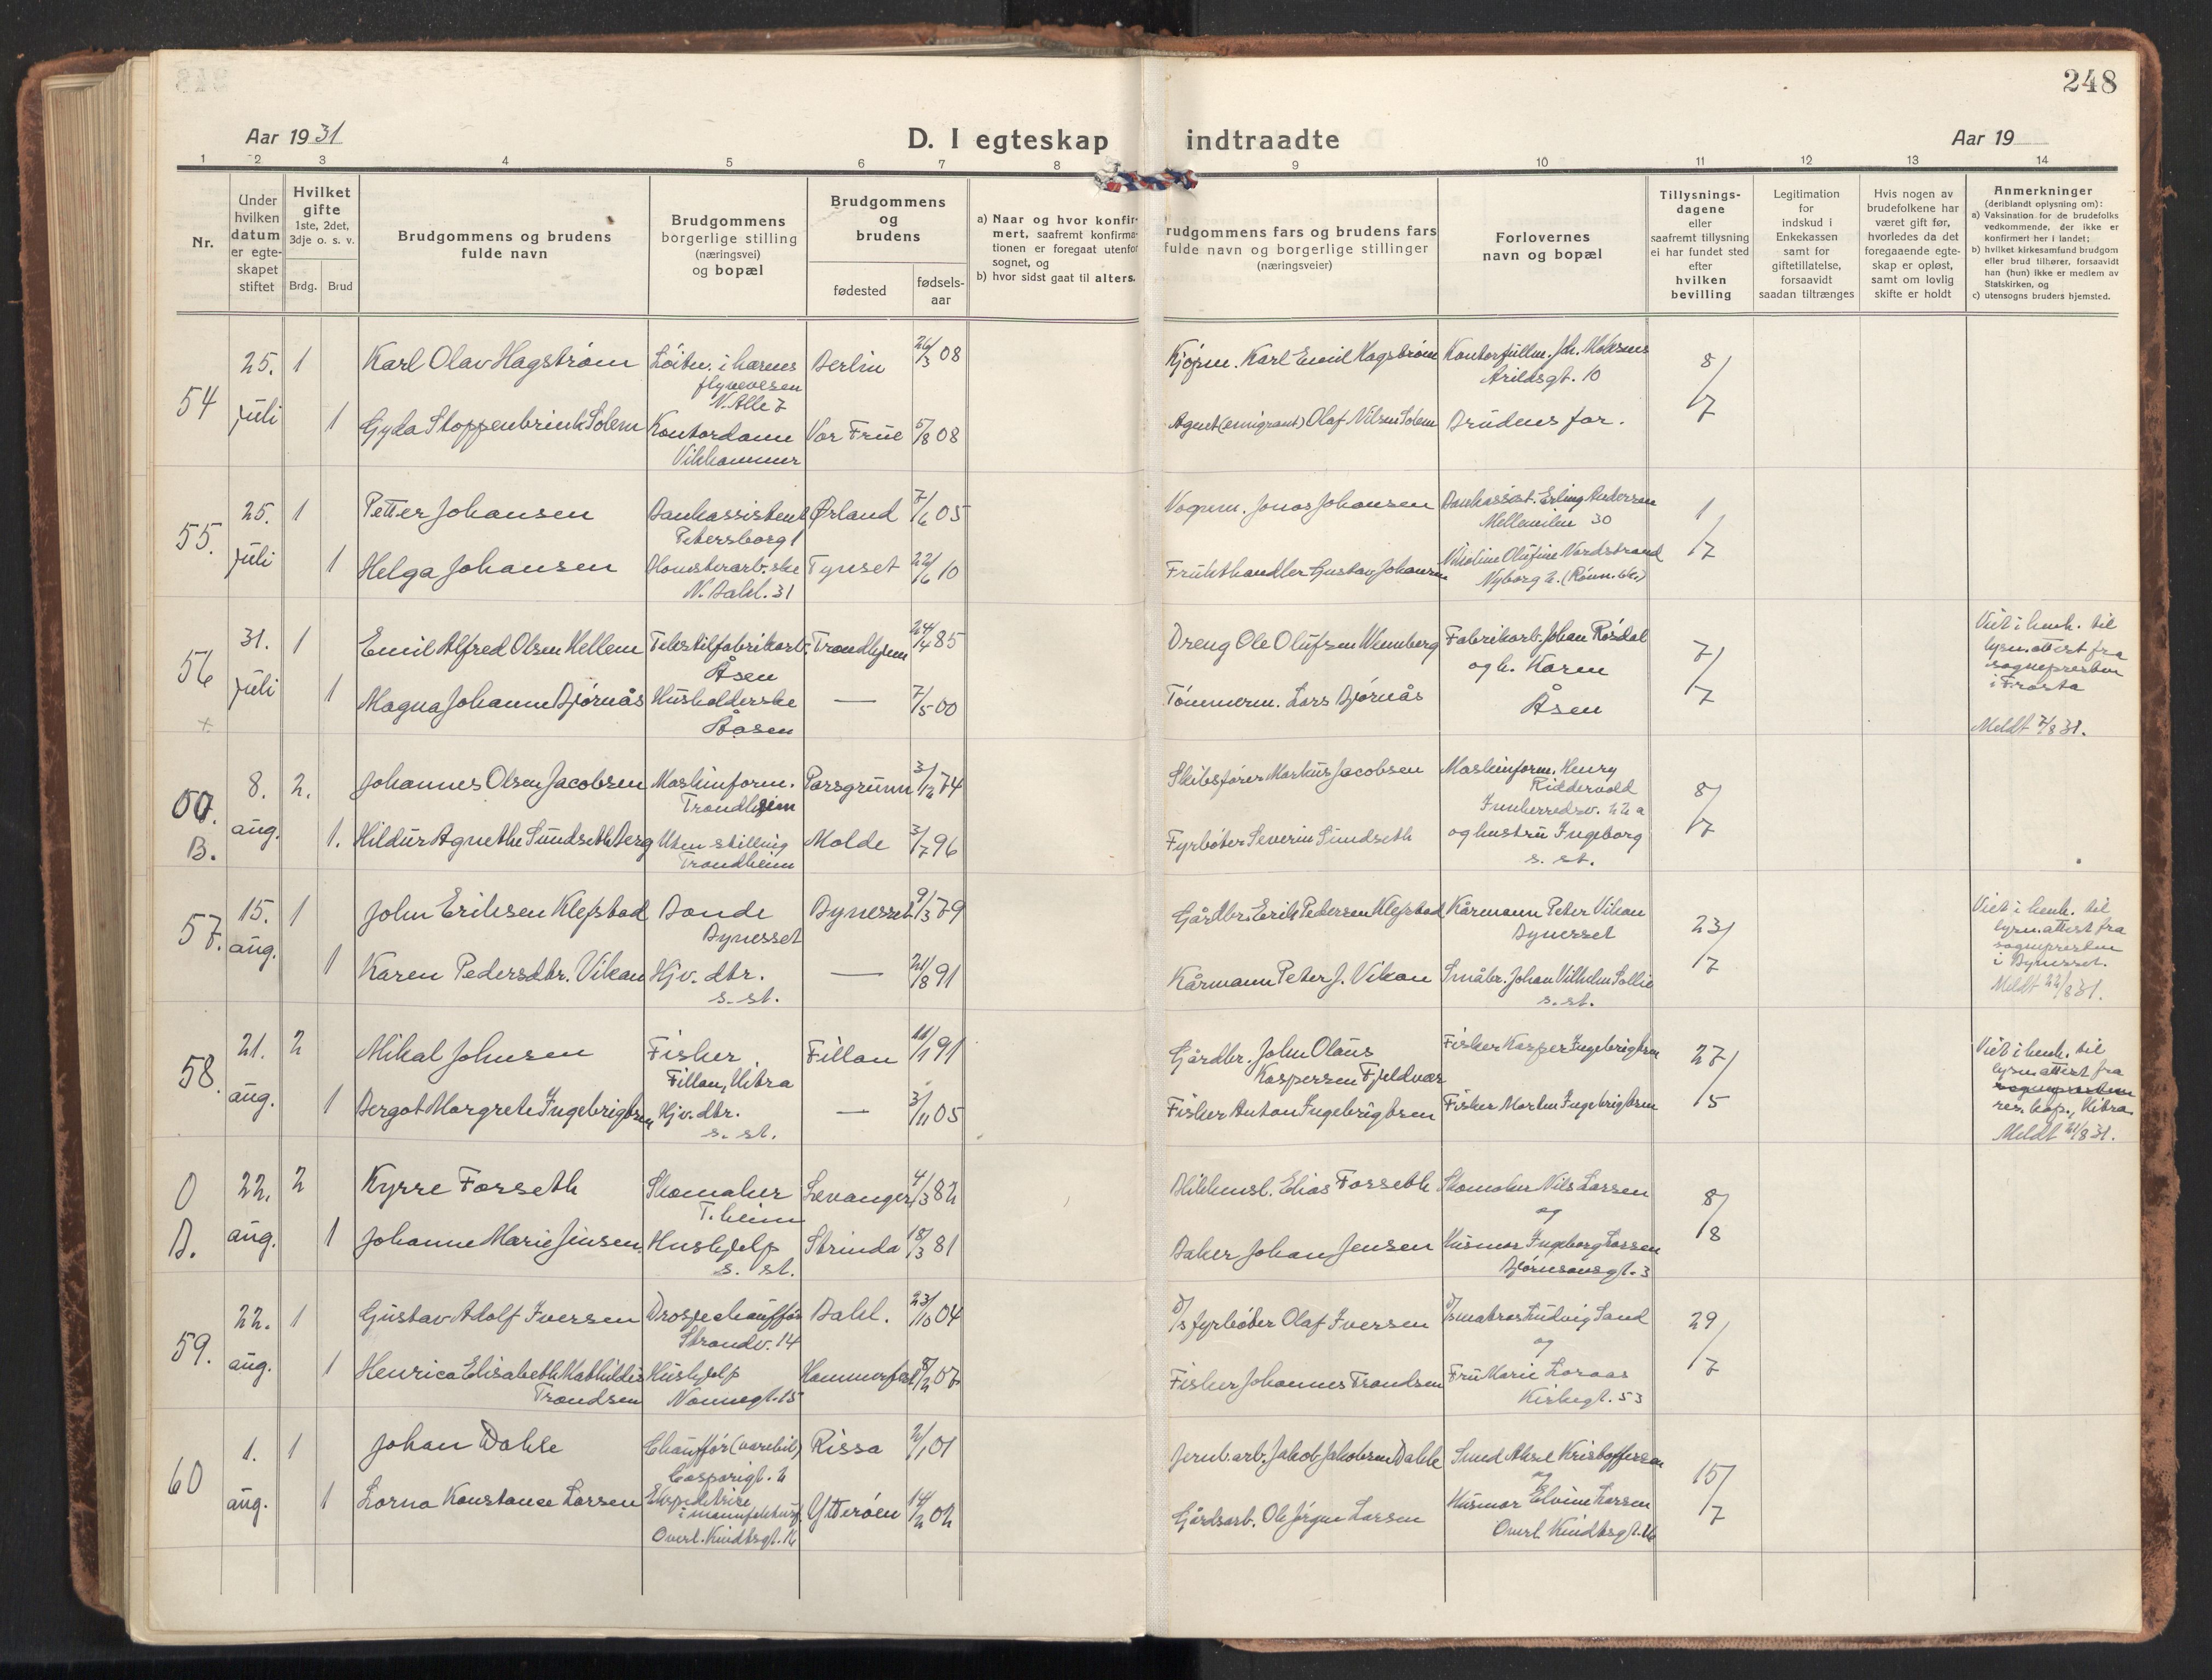 248
Aar 1931
D. I egteskap indtraadte
Aar 19
1 2 3 4 5 6 7 8 9 10 11 12 13 14
Nr.
Under
hvilken
datum
er egte-
skapet
stiftet
Hvilket
gifte
1ste, 2det,
3dje o. s. v.
Brdg. Brud
Brudgommens og brudens
fulde navn
Brudgommens
borgerlige stilling
(næringsvei)
og bopæl
Brudgommens
og
brudens
fødested
fødsels-
aar
a) Naar og hvor konfir-
mert, saafremt konfirma-
tionen er foregaat utenfor
sognet, og
b) hvor sidst gaat til alters.
rudgommens fars og brudens fars
fulde navn og borgerlige stillinger
(næringsveier)
Forlovernes
navn og bopæl
Tillysnings-
dagene
eller
saafremt tillysning
ei har fundet sted
efter
hvilken
bevilling
Legitimation
for
indskud i
Enkekassen
samt for
giftetillatelse,
forsaavidt
saadan tiltrænges
Hvis nogen av
brudefolkene har
været gift før,
hvorledes da det
foregaaende egte-
skap er opløst,
samt om lovlig
skifte er holdt
Anmerkninger
(deriblandt oplysning om):
a) Vaksination for de brudefolks
vedkommende, der ikke er
konfirmert her i landet;
b) hvilket kirkesamfund brudgom
eller brud tilhører, forsaavidt
han (hun) ikke er medlem av
Statskirken, og
c) utensogns bruders hjemsted.
54
25. juli
1 Karl Olav Hagstrøm Løitn. i hærens Berlin 26/3 08 Kjøpm. Karl Emil Hagstrøm Kontorfullm. Joh. Moksnes 8/7
flyvevesen Arildsgt. 10
N. Alle 7
1 Gyda Stoppenbrink Solem Kontordame Vor Frue 5/8 08 Agent (emigrant) Olaf Nilsen Solem Brudens far.
Vikhammer
55.
25. juli
1 Petter Johansen Bankassistent Ørland 7/6 05 Vognm. Jonas Johansen Bankassist. Erling Andersen 1/7
Petersborg 1 Mellemilen 30
1 Helga Johansen Blomsterarb.ske Tynset 22/6 10 Frukthandler Gustav Johansen Nikoline Olufine Nordstrand
N. Bakl. 31 Nyborg
56
31. juli
1 Emil Alfred Olsen Hellem Tekstilfabrikarb. Trondhjem 24/4 85 Dreng Ole Olufsen Wenneberg Fabrikarb. Johan Røsdal 7/7
Åsen og h. Karen
1 Magna Johanne Bjørnås Husholderske — 7/5 00 Tømmerm. Lars Bjørnås Åsen
Åsen
Viet i henh. til
lysn.attest fra
sognepresten
i Frosta
Meldt 7/8 31.
B.
8. aug.
2. Johannes Olsen Jacobsen Maskinform. Porsgrunn 3/12 74 Skibsfører Markus Jacobsen Maskinform. Henry 8/7
Trondheim Riddervold
Innherredsv. 22 a
1. Hildur Agnethe Sundseth Berg Uten stilling Molde 3/7 96 Fyrbøter Severin Sundseth og hustru Ingeborg
Trondheim s. st.
57.
15. aug.
1 John Eriksen Klefstad Bonde Bynesset 9/3 79 Gårdbr. Erik Pedersen Klefstad Kårmann Peter Vikan 23/7
Bynesset Bynesset
1 Karen Pedersdtr. Vikan Hjv. dtr. — 21/8 91 Kårmann Peter J. Vikan Småbr. Johan Vilhelm Sollie
s. st. s. st.
Viet i henh. til
lysn.attest fra
sognepresten
i Bynesset.
Meldt 22/8 31.
58.
21. aug.
2 Mikal Johnsen Fisker Fillan 11/1 91 Gårdbr. John Olaus Fisker Kasper Ingebrigtsen 27/5
Fillan, Hitra Kaspersen Fjeldvær
1 Bergot Margrete Ingebrigtsen Hjv. dtr. — 3/11 05 Fisker Anton Ingebrigtsen Fisker Morten Ingebrigtsen
s. st.
Viet i henh. til
lysn.attest fra
sognepresten
res. kap., Hitra
Meldt 21/8 31.
0
B.
22. aug.
2 Kyrre Forseth Skomaker Levanger 4/3 82 Elias Forseth Skomaker Nils Larsen 8/8
T.heim og
1 Johanne Marie Jensen Hushjelp Strinda 18/3 81 Baker Johan Jensen Husmor Ingeborg Larsen
s. st. Bjørnsonsgt. 3
59.
22. aug.
1 Gustav Adolf Iversen Drosjechauffør Bakl. 23/10 04 d/s fyrbøter Olaf Iversen d/s matros Ludvig Sand 29/7
Strandv. 14 og
1 Henrica Elisabeth Mathildis Hushjelp Hammerfest 8/2 07 Fisker Johannes Trondsen Fru Marie Loraas
Trondsen Nonnegt. 15 Kirkegt. 53
60
1. aug.
1 Johan Dahle Chauffør (varebil) Rissa 2/1 01 Jernb.arb. Jakob Jakobsen Dahle Smed Aksel Kristoffersen 15/7
Casparigt. 2 og
1 Lorna Konstance Larsen Ekspeditrise Ytterøen 14/2 02 Gårdsarb. Ole Jørgen Larsen Husmor Elvine Larsen
i manufakturf.
Overl. Kindtsgt. 16 Overl. Kindtsgt. 16